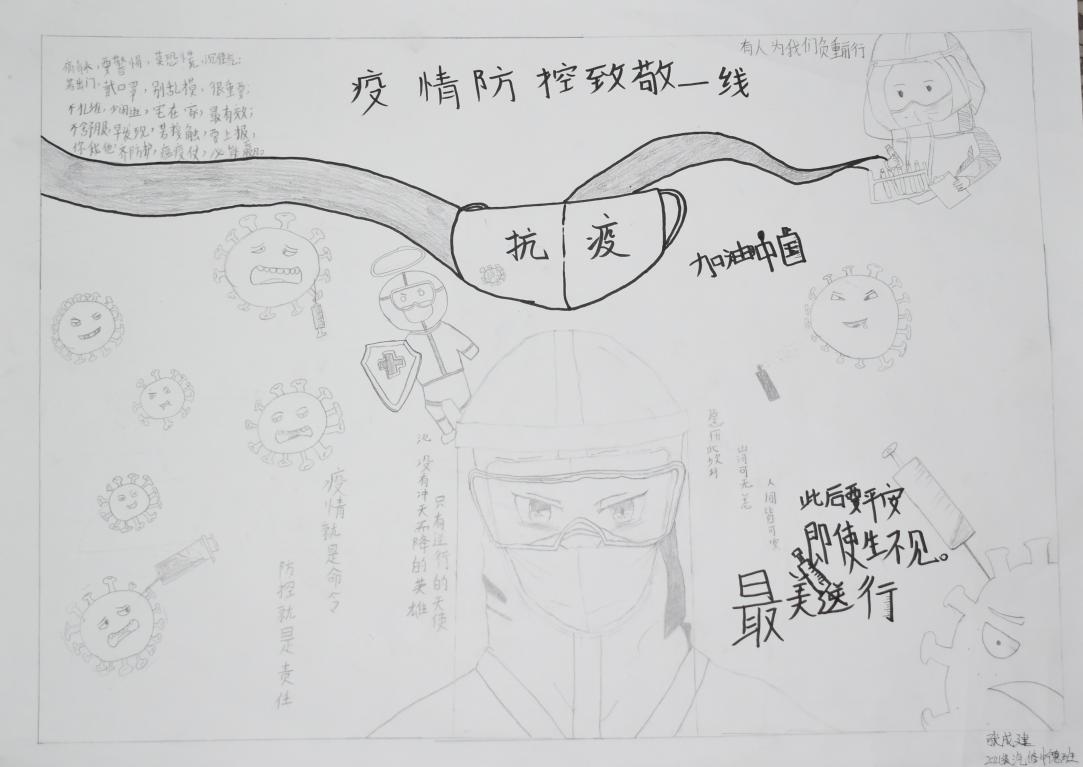 疫情防控致敬一线
有人为我们负重前行
要警惕,莫恐慌,沉住气;
若出门,戴口罩,别乱摸,很重要;
不扎堆,宅在家,最有效;
不舒服,早发现,若接触,要上报,
你我他,齐防护,
抗疫
加油中国
疫情就是命令
防控就是责任
没有冲天而降的英雄
只有逆行的天使
山河可无恙
人间皆可安
此后要平安
即使生不见。
最美逆行
张成建
2021级汽修中德班